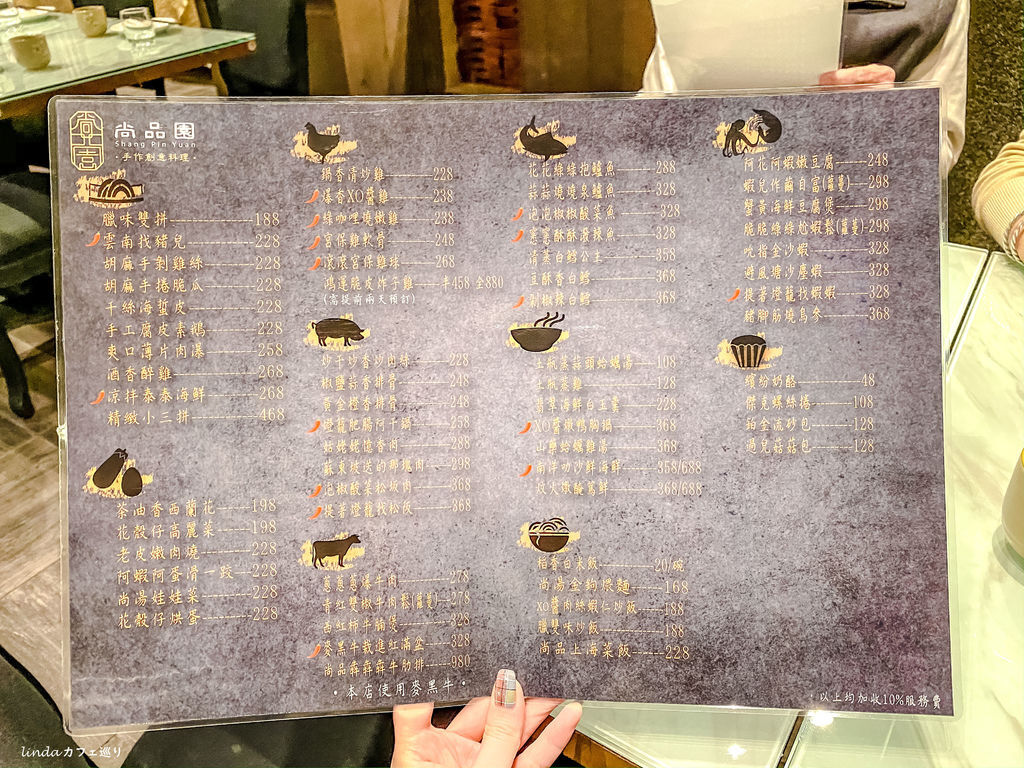 尚品園
Shang Pin Yuan
·手作創意料理·
臘味雙拼 188
雲南找豬兒 228
胡麻手剝雞絲 228
胡麻手捲脆瓜 228
干絲海蜇皮 228
手工腐皮素鵝 228
爽口薄片肉瀑 258
酒香醉雞 268
涼拌泰泰海鮮 268
精緻小三拼 468
茶油香西蘭花 198
花殼仔高麗菜 198
老皮嫩肉燒 228
阿蝦阿蛋滑一跤 228
尚湯娃娃菜 228
花殼仔烘蛋 228
鍋香清炒雞 228
爆香XO醬雞 238
綠咖哩燒嫩雞 238
宮保雞軟骨 248
滾滾宮保雞球 268
鴻運脆皮炸子雞 半458 全880
(需提前兩天預訂)
炒干炒香炒肉絲 228
椒鹽蒜香排骨 248
黃金橙香排骨 248
燈籠肥腸阿干鍋 258
姑姥姥憶香肉 288
蘇東坡送的那塊肉 298
泡椒酸菜松坂肉 368
提著燈籠找松阪 368
蔥蔥蔥爆牛肉 278
青紅雙椒牛肉鬆(蘿蔓) 278
西紅柿牛腩煲 328
麥黑牛栽進紅滿盆 328
尚品犇犇犇牛肋排 980
·本店使用麥黑牛·
花花綠綠抱鱸魚 288
蒜蒜燒燒泉鱸魚 328
泡泡椒椒酸菜魚 328
蜜蜜酥酥潑辣魚 328
清蒸白鱈公主 358
豆酥香白鱈 368
剁椒辣白鱈 368
上瓶蒸蒜頭蛤蠣湯 108
上瓶蒸雞 128
翡翠海鮮白玉羹 228
XO醬燉鴨胸鍋 368
山藥蛤蠣雞湯 368
南洋叻沙鮮海鮮 358/688
文火燉醃篤鮮 368/688
稻香白米飯 20/碗
尚湯金鉤燉麵 168
XO醬肉絲蝦仁炒飯 188
臘雙味炒飯 188
尚品上海菜飯 228
阿花阿蝦嫩豆腐 248
蝦兒作繭自富(蘿蔓) 298
蟹黃海鮮豆腐煲 298
脆脆綠綠尬蝦鬆(蘿蔓) 298
吮指金沙蝦 328
避風塘沙塵蝦 328
提著燈籠找蝦蝦 328
豬腳筋燒烏參 368
繽紛奶酪 48
傑克螺絲捲 108
鉑金流砂包 128
過兒菇菇包 128
·以上均加收10%服務費
lindaカフェ巡り